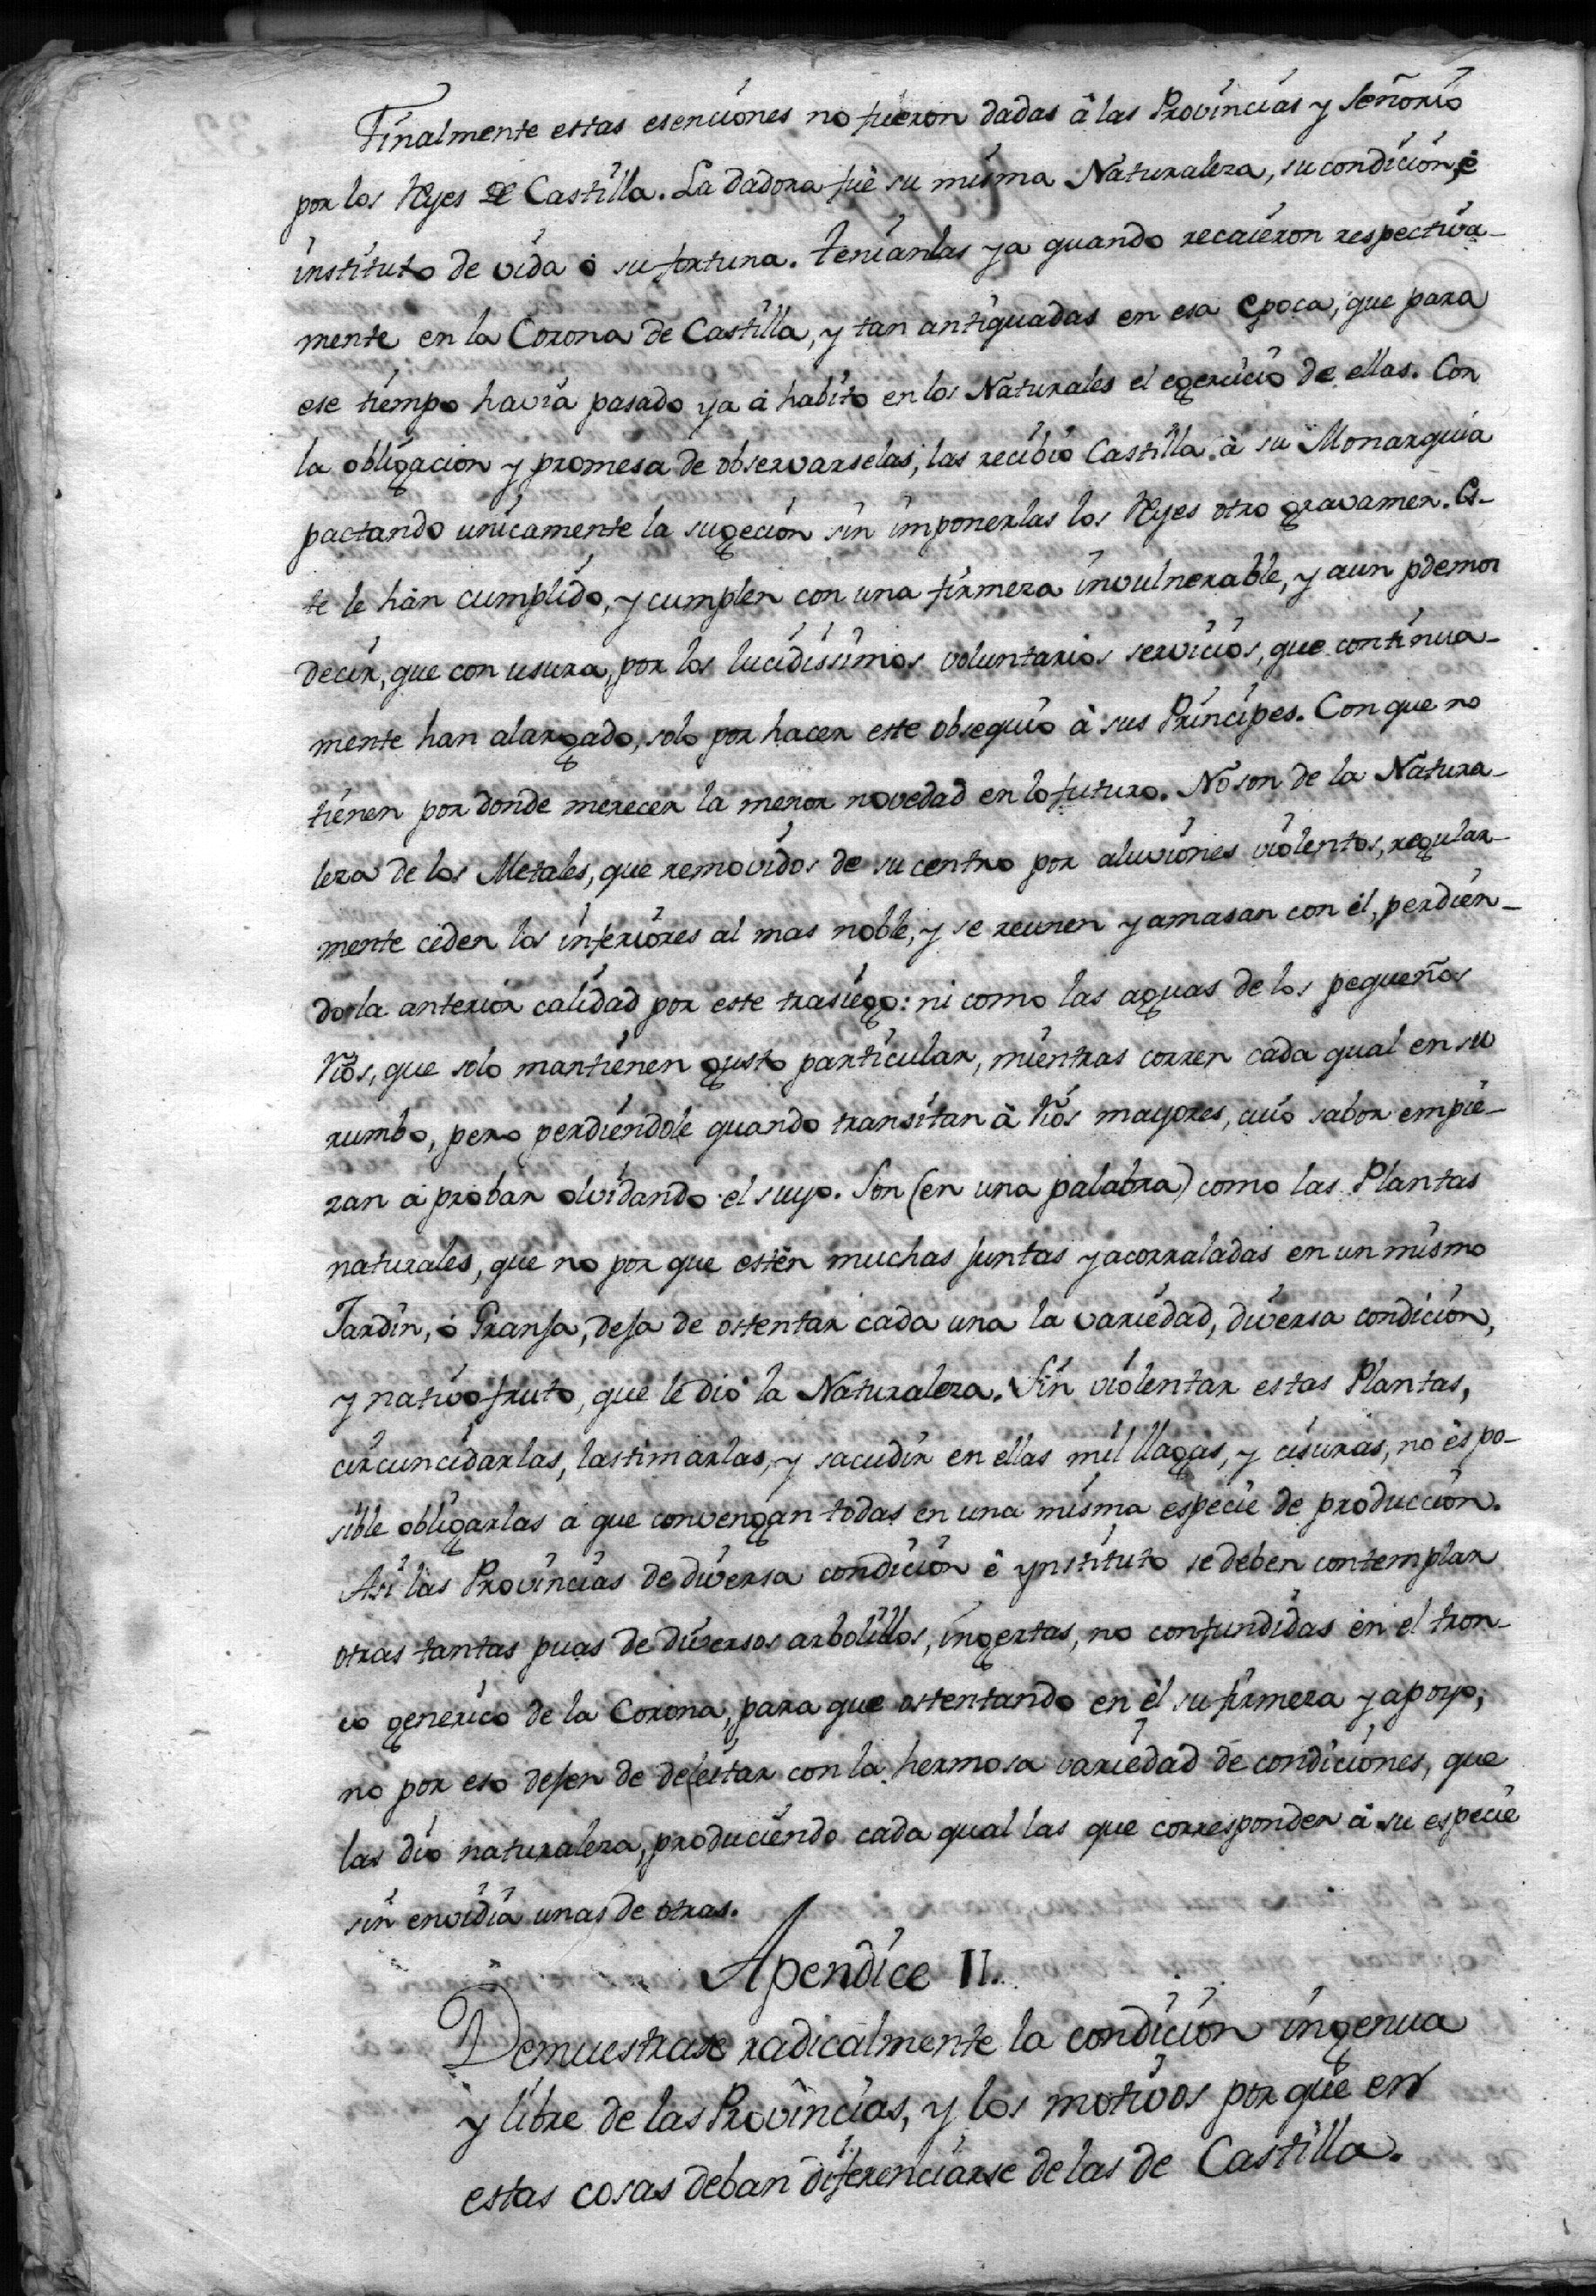 Finalmente estas esenciones no fueron dadas â las Provincias y Señorio
por los Reyes de Castilla. La dadora fuè su misma Naturaleza, su condicion, è
instituto de vida ò su fortuna. Tenianlas ya quando recaieron respectiva-
mente en la Corona de Castilla, y tan antiguadas en esa epoca, que para
ese tiempo havia pasado ya á habito en los Naturales el egercicio de ellas. Con
la obligacion y promesa de observarselas, las recibiò Castilla à su Monarquia
pactando unicamente la sugecion sin imponerlas los Reyes otro gravamen. Es-
te le hàn cumplido, y cumplen con una firmeza invulnerable, y aun podemos
decir, que con usura, por los lucidissimos voluntarios servicios, que continua-
mente han alargado, solo por hacer este obsequio à sus Principes. Con que no
tienen por donde merecer la menor novedad en lo futuro. No son de la Natura-
leza de los Metales, que removidos de su centro por aluviones violentos, regular-
mente ceden los inferiores al mas noble, y se reunen y amasan con èl, perdien-
do la anterior calidad por este trasiego: ni como las aguas de los pequeños
Rios, que solo mantienen gusto particular, mientras corren cada qual en su
rumbo, pero perdiendole quando transitan à Rios mayores, cuio sabor empie-
zan á probar olvidando el suyo. Son (en una palabra) como las Plantas
naturales, que no por que estèn muchas juntas y acorraladas en un mismo
Jardin, ò Granja, deja de ostentar cada una la variedad, diversa condicion,
y nativo fruto, que le diò la Naturaleza. Sin violentar estas Plantas,
circuncidarlas, lastimarlas, y sacudir en ellas mil llagas, y cisuras, no ès po-
sible obligarlas á que convengan todas en una misma especie de produccion.
Asi las Provincias de diversa condicion è ynstituto se deben contemplar
otras tantas puas de diversos arbolillos, ingertas, no confundidas en el tron-
co generico de la Corona, para que ostentando en èl su firmeza y apoyo,
no por eso dejen de deleitar con la hermosa variedad de condiciones, que
las dio naturaleza, produciendo cada qual las que corresponden à su especie
sin envidia unas de otras.
Apendice II.
Demuestrase radicalmente la condicion ingenua
y libre de las Provincias, y los motivos por que en
estas cosas deban diferenciarse de las de Castilla.